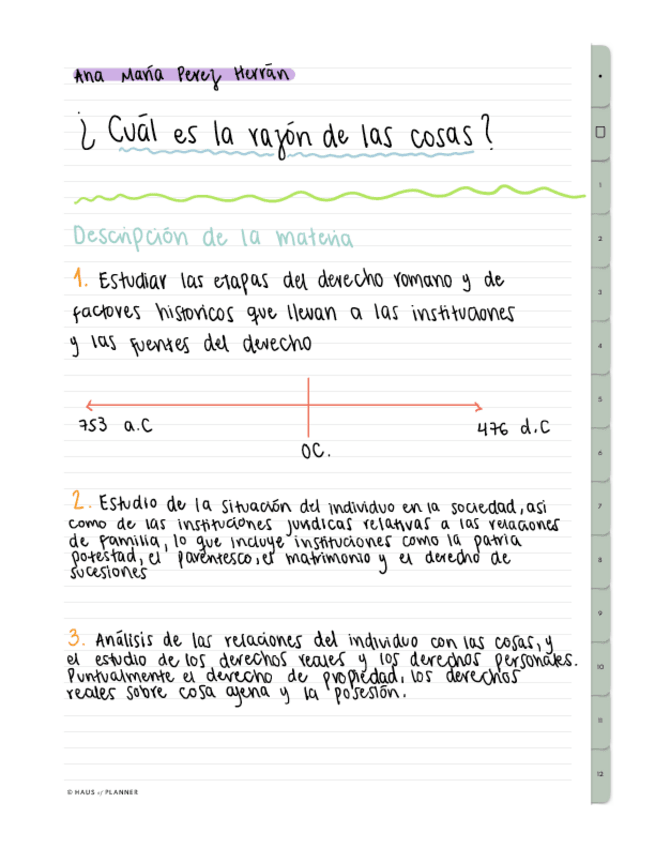 Ana María Perez Herrán
¿Cuál es la razón de las cosas?
Descripción de la materia
1. Estudiar las etapas del derecho romano y de
factores historicos que llevan a las instituciones
y las fuentes del derecho
753 a.C
476 d.C
0C.
2. Estudio de la situación del individuo en la sociedad, asi
como de las instituciones jurídicas relativas a las relaciones
de familia, lo que incluye instituciones como la patria
potestad, el parentesco, el matrimonio y el derecho de
sucesiones
3. Análisis de las relaciones del individuo con las cosas, y
el estudio de los derechos reales y los derechos personales.
Puntualmente el derecho de propiedad, los derechos
reales sobre cosa ajena y la posesión.
1
2
3
4
5
6
7
8
9
10
11
12
© HAUS of PLANNER